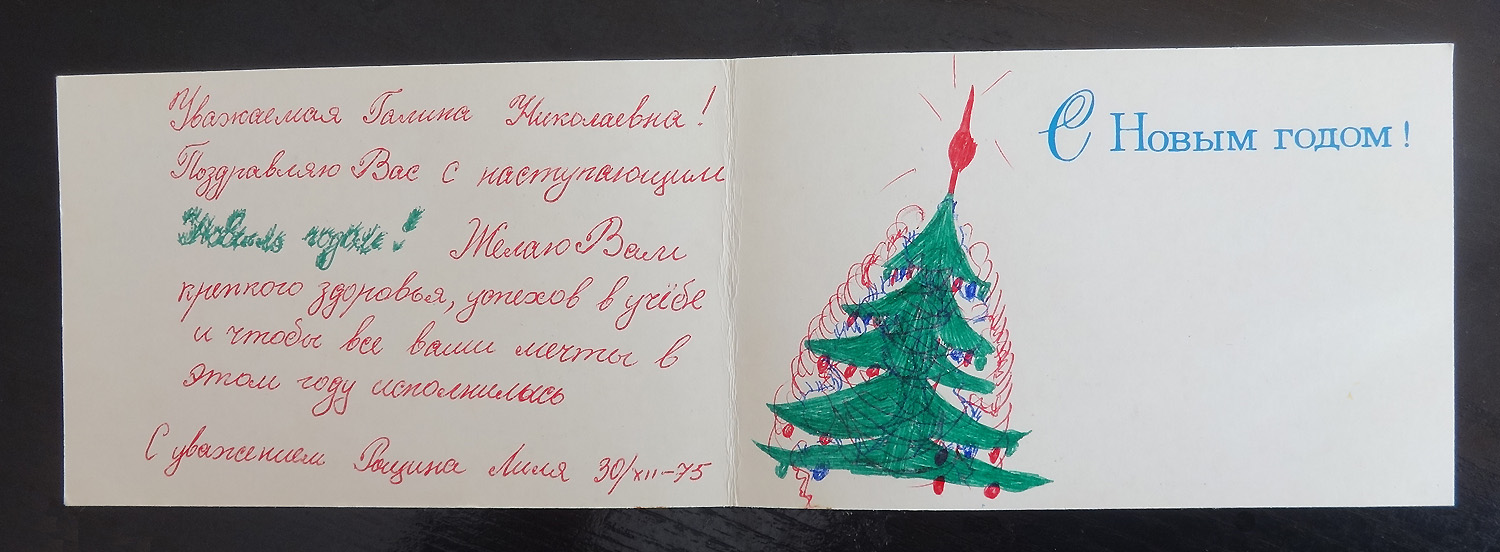 Уважаемая Галина Николаевна!
Поздравляю Вас с наступающим
Новым годом! Желаю Вам
крепкого здоровья, успехов в учёбе
и чтобы все ваши мечты в
этом году исполнилась
С уважением Рощина Лиля 30/XII-75
С Новым годом!